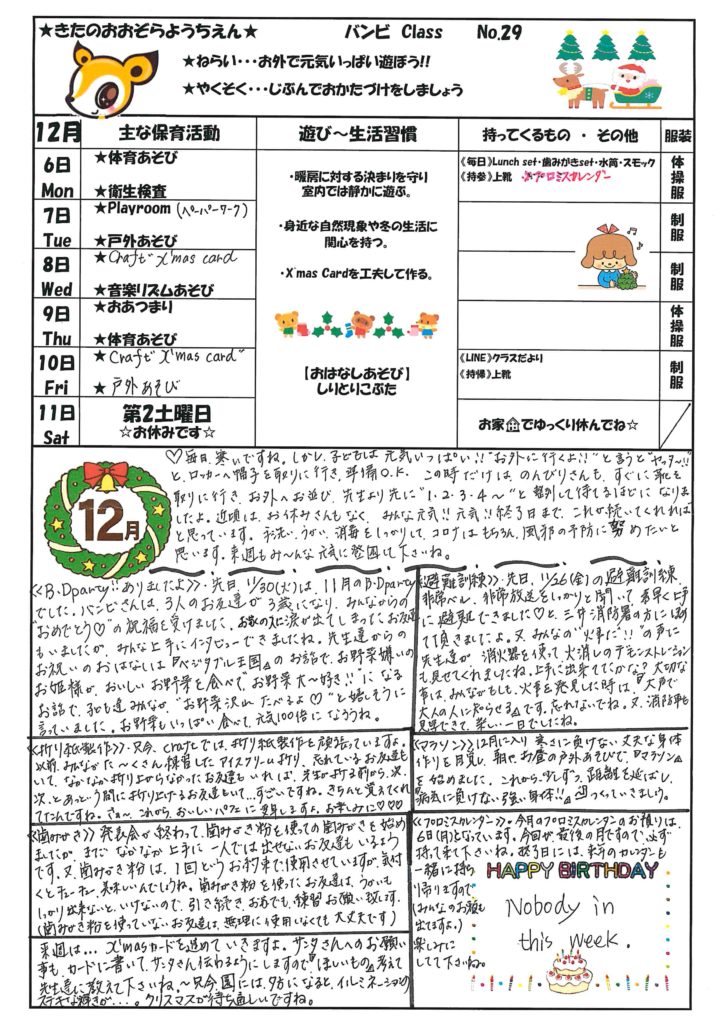 ★きたのおおぞらようちえん★　バンビ Class　No.29
★ねらい・・・お外で元気いっぱい遊ぼう!!
★やくそく・・・じぶんでおかたづけをしましょう
12月　主な保育活動　遊び～生活習慣　持ってくるもの ・ その他　服装
6日 Mon
★体育あそび
★衛生検査
《毎日》Lunch set・歯みがきset・水筒・スモック
《持参》上靴　☆プロミスカレンダー
体操服
7日 Tue
★Playroom (ペーパーワーク)
★戸外あそび
制服
8日 Wed
★Craft" X'mas card
★音楽リズムあそび
制服
9日 Thu
★おあつまり
★体育あそび
体操服
10日 Fri
★Craft"X'mas card"
★戸外あそび
《LINE》クラスだより
《持帰》上靴
制服
11日 Sat
第2土曜日
☆お休みです☆
お家でゆっくり休んでね☆
・暖房に対する決まりを守り
室内では静かに遊ぶ。
・身近な自然現象や冬の生活に
関心を持つ。
・X'mas Cardを工夫して作る。
【おはなしあそび】
しりとりこぶた
12月
♡毎日、寒いですね。しかし、子どもは元気いっぱい!!"お外に行くよ!!"と言うと"ヤッター!!"
と、ロッカーへ帽子を取りに行き、準備O.K. この時だけは、のんびりさんも、すぐに靴を
取りに行き、お外へお並び、先生より先に"1・2・3・4～"と整列して待てるほどになりま
したよ。近頃は、お休みさんもなく、みんな元気!!元気!!終了日まで、これが続いてくれれば
と思っています。手洗い、うがい、消毒をしっかりして、コロナはもちろん、風邪の予防に努めたいと
思います。来週もみ～んな元気に登園して下さいね。
《B・Dparty!!ありましたよ》・先日、11/30(火)は、11月のB・Dparty
でした。バンビさんは、3人のお友達が3歳になり、みんなからの
"おめでとう♡"の祝福を受けました。お家の人に涙が出てしまったお友達
もいましたが、みんな上手にインタビューできましたね。先生達からの
お祝いのおはなしは『ベジタブル王国』のお話で、お野菜嫌いの
お姫様が、おいしいお野菜を食べて"お野菜大～好き!!"になる
お話で、子ども達みんなが"お野菜沢山たべるよ♡"と嬉しそうに
言っていました。お野菜もいっぱい食べて、元気100倍になろうね。
《避難訓練》・先日、11/26(金)の避難訓練、
非常ベル、非常放送をしっかりと聞いて、素早く上手
に避難できました♡と、三井消防署の方にほめ
て頂きましたよ。又、みんなの"火事だ!!"の声に
先生達が、消火器を使って、火消しのデモンストレーション
も見せてくれましたね。上手に出来てたかな？大切な
事は、みんながもしも、火事を発見した時は、『大声で
大人の人に知らせる』です。忘れないでね。又、消防車も
見学できて、楽しい一日でしたね。
《折り紙製作》・只今、craftでは、折り紙製作も頑張っていますよ。
以前、みんながた～くさん練習したアイスクリーム折り、忘れているお友達も
いて、なかなか折り上がらなかったお友達もいれば、先生が折る前から、次、
次、とあっという間に折り上げるお友達もいて…すごいですね。きちんと覚えてくれ
てたんですね。さぁ～、これから、おいしいパフェに変身しますよ。お楽しみに♡♡♡
《マラソン》12月に入り、寒さに負けない丈夫な身体
作りを目指し、朝やお昼の戸外あそびで、『マラソン』
を始めました。これから、少しずつ、距離を延ばし、
病気に負けない強い身体!!をつくっていきましょう。
《歯みがき》発表会が終わって、歯みがき粉を使っての歯みがきを始め
ましたが、まだ、なかなか上手に一人では出せないお友達もいるよう
です。又、歯みがき粉は、1回というお約束で使用させていますが、気付
くとチューチュー美味しいんでしょうね。歯みがき粉を使ったお友達は、うがいも
しっかり出来ないと、いけないので、引き続き、お家でも、練習お願い致します。
(歯みがき粉を使っていないお友達は、無理に使用しなくても大丈夫です)
《プロミスカレンダー》・今月のプロミスカレンダーのお預りは
6日(月)となっています。今回が最後の月ですので、必ず
持って来て下さいね。終了日には、来月のカレンダーも
一緒に持ち
帰りますので
(みんなのお顔も
出てますよ。)
楽しみに
してて下さいね。
HAPPY BIRTHDAY
Nobody in
this week.
来週は… X'masカードを進めていきますよ。サンタさんへのお願い
事も、カードに書いて、サンタさんに伝わるようにしますので『ほしいもの』考えて
先生達に教えて下さいね。～只今、園には、夕方になると、イルミネーションの
ステキな輝きが…。クリスマスが待ち遠しいですね。